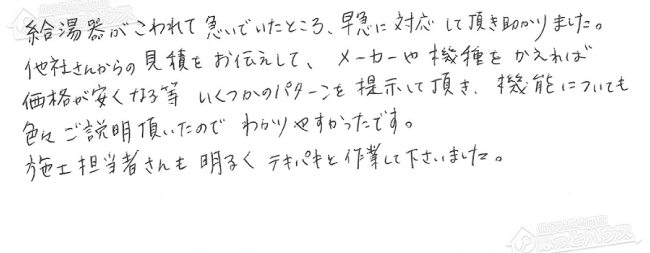 給湯器がこわれて急いでいたところ、早急に対応して頂き助かりました。
他社さんからの見積をお伝えして、メーカーや機種をかえれば
価格が安くなる等 いくつかのパターンを提示して頂き、機能についても
色々ご説明頂いたので わかりやすかったです。
施工担当者さんも 明るく テキパキと作業して下さいました。